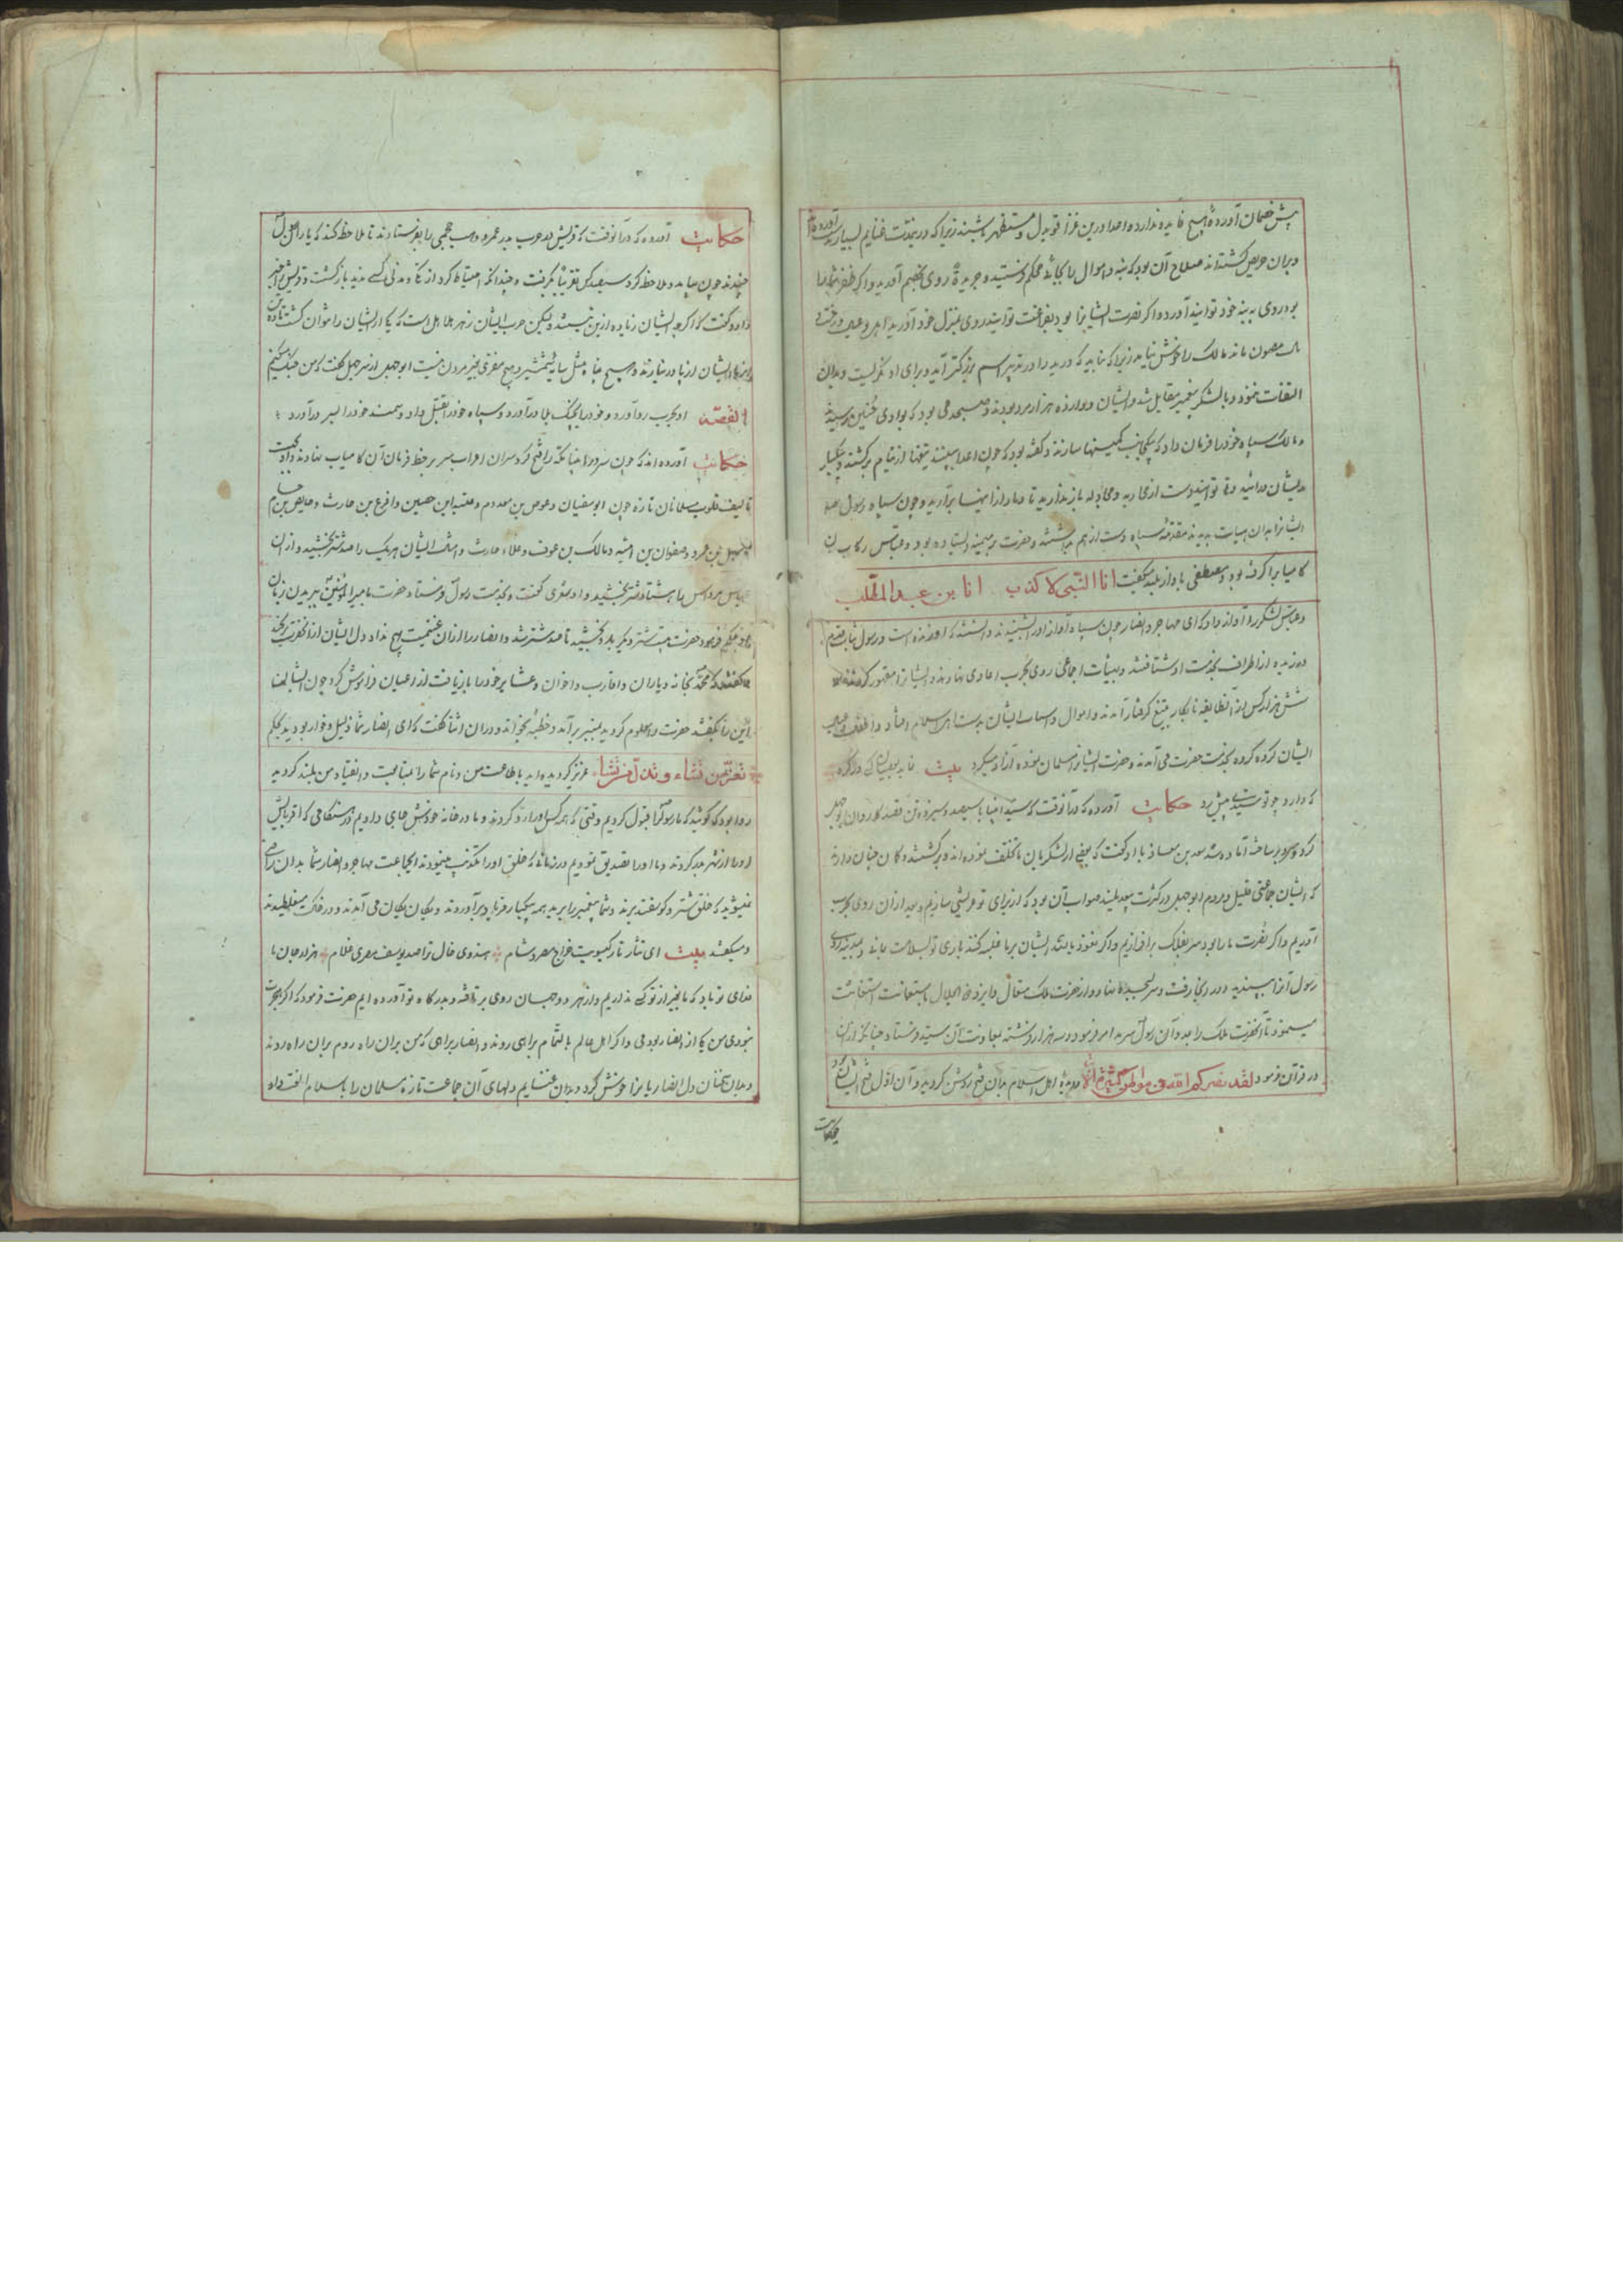 پیش خصمان آورده هیچ فایده ندارد و اعدا درین غزا قویدل و مستظهر باشند زیرا که در مدت غنایم بسیار آورده‌اند
و بران حریص گشته‌اند صلاح آن بود که بنه و اموال را بجائی محکم بفرستید و جریده روی بخصم آورید و اگر ظفر شما را
بود روی به بنه خود توانید آورد و اگر نصرت ایشانرا بود بفراغت توانید روی بمنزل خود آورید
مصون ماند مالک را خوش نیامد زیرا که در تدبیر اسم بزرگتر آید و برای او ننگریست و بدان
التفات ننمود و با لشکر پیغمبر مقابل شد و ایشان دوازده هزار مرد بودند و صبحدمی بود که بوادی حنین رسیدند
و مالک سپاه خود را فرمان داد که کمینها سازند و گفته بود که چون اعدا ببینند تیغها از نیام برکشند و یکبار
بدیشان درآئید و تا توانید دست از محاربه و مجادله باز ندارید تا دمار از اینها برآرید و چون سپاه رسول
ایشانرا بدان هیأت بدیدند مقدمه سپاه دست از هم بداشتند و حضرت بر میمنه ایستاده بود و عباس رکاب
کامیاب را گرفته بود و مصطفی باواز بلند میگفت انا النبی لا کذب انا بن عبد المطلب
و عباس لشکر را آواز داد که ای مهاجر و انصار چون سپاه آواز او را شنیدند دانستند که او زنده است و رسول ثابت قدم
دویدند از اطراف بخدمت او شتافتند و بهیأت اجماعی روی بحرب اعادی نهادند و ایشانرا مقهور کردند
شش هزار کس از آن طایفه نابکار بتیغ گرفتار آمدند و اموال و اسباب ایشان بدست اهل اسلام افتاد
ایشان گروه گروه بخدمت حضرت می آمدند و حضرت ایشانرا مسلمان نموده آزاد میکرد بیت
که دارد چو تو سیدی پیش رو حکایت آورده که در آنوقت که سید انبیا با سیصد و سیزده تن قصد کاروان بوجهل
کرد و آماده شد سعد بن معاذ با او گفت که بعضی از لشکریان ما تخلف نموده اند و برگشتند و گمان چنان دارند
که ایشان جماعتی قلیل و مردم ابوجهل در کثرت بیحد لیکن صواب آن بود که از برای تو عریشی سازیم و بعد از آن روی بحرب
آوریم و اگر نصرت ما را بود سر بفلک برافرازیم و اگر نعوذ بالله ایشان بر ما غلبه کنند باری تو بسلامت مانده
رسول آنرا بپسندید و در آنجا رفت و سر بسجده نهاد و از حضرت ملک متعال و ایزد ذی الجلال استعانت استغاثت
مینمود تا آنحضرت ملک را بمدد آن رسول سرمد امر فرمود و سه هزار فرشته بمعاونت آن سید فرستاد چنانکه
در قرآن فرمود لقد نصرکم الله فی مواطن کثیرة و دیده اهل اسلام بدان فتح روشن گردید و آن اول فتح ایشان بود
حکایت
حکایت آورده که در آنوقت که قریش بحرب بدر عمرو وهب جمحی را بفرستادند تا ملاحظه کند که یاران رسول
چندند چون بیامد و ملاحظه کرد سیصد کس تقریبا بگرفت و چندانکه احتیاط کرد از کمین و مددی کسی ندید بازگشت و قریش را خبر
داد و گفت که اگرچه ایشان زیاده ازین نیستند ولیکن حرب ایشان زهر هلاهل است که یکی از ایشان را نتوان کشت تا ده تن
از پا در نیارند و هیچ پناه مثل سایه شمشیر و هیچ مفری بغیر مردن نیست ابوجهل از سر جهل گفت که من جنگ میکنم
القصه او بحرب رو آورد و خود را بچنگ بلا درآورد و سپاه خود را بقتل داد و سمند خود را بسر درآورد
حکایت آورده اند که چون سرور انبیا مکه را فتح کرد سران اعراب سر بر خط فرمان آن کامیاب نهادند و از جهت
تألیف قلوب مسلمانان تازه چون ابوسفیان و عوص بن معدوم و عتبه ابن حصین و اقرع بن حارث و
سهیل بن عمرو و صفوان بن امیه و مالک بن عوف و علاء حارث و امثال ایشان هر یک را صد شتر بخشید و از آن
عباس مرداس را هشتاد شتر بخشید و او شعری گفت و بخدمت رسول فرستاد حضرت با امیر المؤمنین ببریدن زبان
او حکم فرمود حضرت بیست شتر دیگر بدو بخشید تا صد شتر شد و انصار را از آن غنیمت هیچ نداد دل ایشان از آنحضرت برنجید
میگفتند که محمد بخانه و یاران و اقارب و اخوان و عشایر خود را بازیافت از اعیان فراموش کرد چون ایشان
این را بگفتند حضرت را معلوم گردید بمنبر برآمد و خطبه بخواند و در آن اثنا گفت که ای انصار شما ذلیل و خوار بودید بحکم
تعز من تشاء و تذل من تشاء عزیز گردیده اید با طاعت من و نام شما را بمتابعت و انقیاد من بلند گردید
روا بود که گوئید که ما رسول را قبول کردیم وقتی که همه کس او را رد کردند و ما در خانه خودش جای دادیم در هنگامی که اقربایش
او را از شهر بدر کردند و ما او را تصدیق نمودیم در زمانی که خلق او را تکذیب مینمودند ایجماعت مهاجر و انصار شما بدان راضی
نمیشوید که خلق شتر و گوسفند برند و شما پیغمبر را برید همه بیکبار فریاد برآوردند و یکان یکان می آمدند و در خاک میغلطیدند
و میگفتند بیت ای نثار تار گیسویت خراج مصر و شام * هندوی خال ترا صد یوسف مصری غلام * هزار جان ما
فدای تو باد که ما بغیر از تو کسی نداریم و از هر دو جهان روی برتافته و بدرگاه تو آورده ایم حضرت فرمود که اگر هجرت
نبودی من یکی از انصار بودمی و اگر اهل عالم بالتمام براهی روند و انصار براهی که من بران راه روم بران راه روند
و بدان سخنان دل انصار یانرا خوش کرد و بدان غنایم دلهای آن جماعت تازه مسلمان را باسلام الفت داد